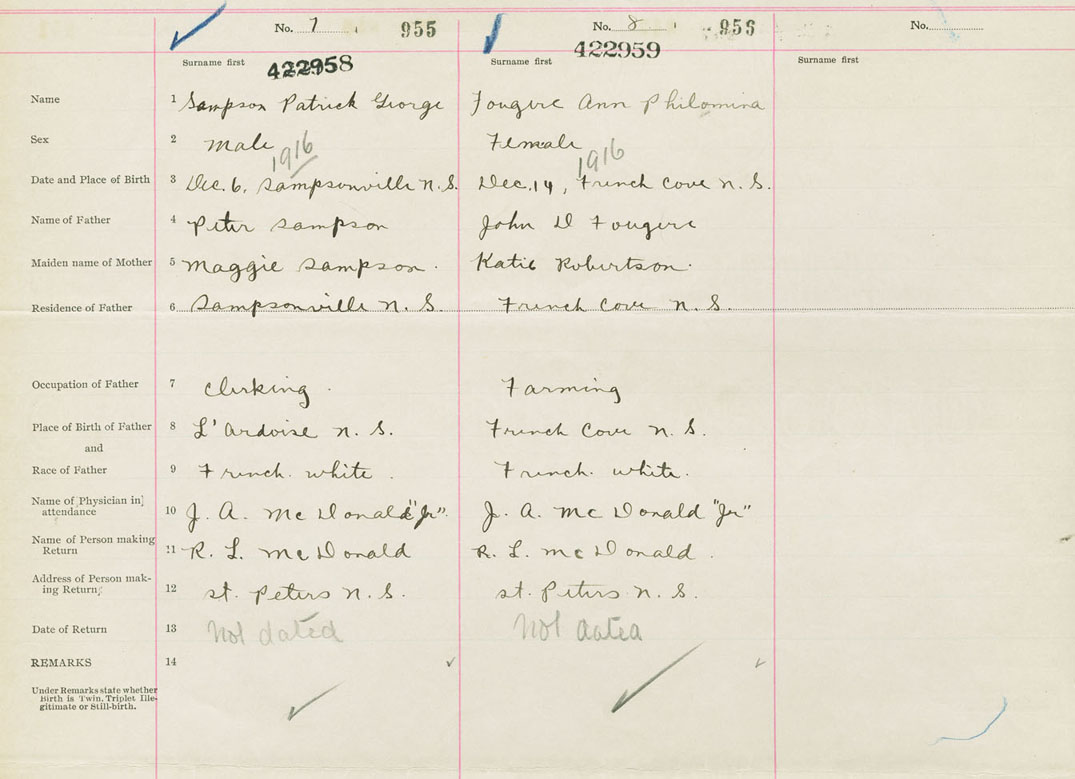 No. 7 955 No. 8 956 No.
422958 422959
Surname first Surname first Surname first
Name 1 Sampson Patrick George Fougere Ann Philomina
Sex 2 Male Female
1916 1916
Date and Place of Birth 3 Dec. 6, Sampsonville N.S. Dec. 14, French Cove N.S.
Name of Father 4 Peter Sampson John D Fougere
Maiden name of Mother 5 Maggie Sampson. Katie Robertson.
Residence of Father 6 Sampsonville N.S. French Cove N.S.
Occupation of Father 7 Clerking. Farming
Place of Birth of Father 8 L'Ardoise N.S. French Cove N.S.
and
Race of Father 9 French. white. French. white.
Name of Physician in
attendance 10 J. A. McDonald "Jr". J. A. McDonald "Jr"
Name of Person making
Return 11 R. L. McDonald R. L. McDonald.
Address of Person mak-
ing Return 12 St. Peters N.S. St. Peters N.S.
Date of Return 13 Not dated Not dated
REMARKS 14
Under Remarks state whether
Birth is Twin, Triplet Ille-
gitimate or Still-birth.